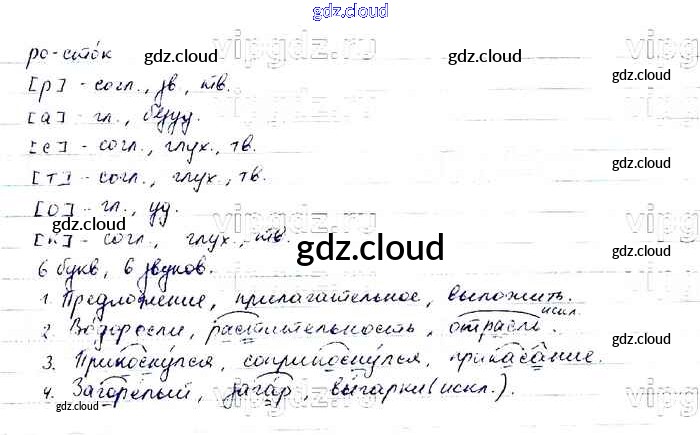 gdz.cloud
ро-сто́к
[р] - согл., зв, тв.
[а] - гл., безуд.
[с] - согл., глух., тв.
[т] - согл., глух., тв.
[о] - гл., уд.
[к] - согл., глух., тв.
6 букв, 6 звуков.
1. Предложение, прилагательное, выложить.
2. Водоросли, растительность, отрасли. искл.
3. Прикоснулся, соприкоснулся, прикасание.
4. Загорелый, загар, выгарки (искл.).
gdz.cloud
gdz.cloud
gdz.cloud
gdz.cloud
gdz.cloud
gdz.cloud
gdz.cloud
gdz.cloud
vipgdz.ru
vipgdz.ru